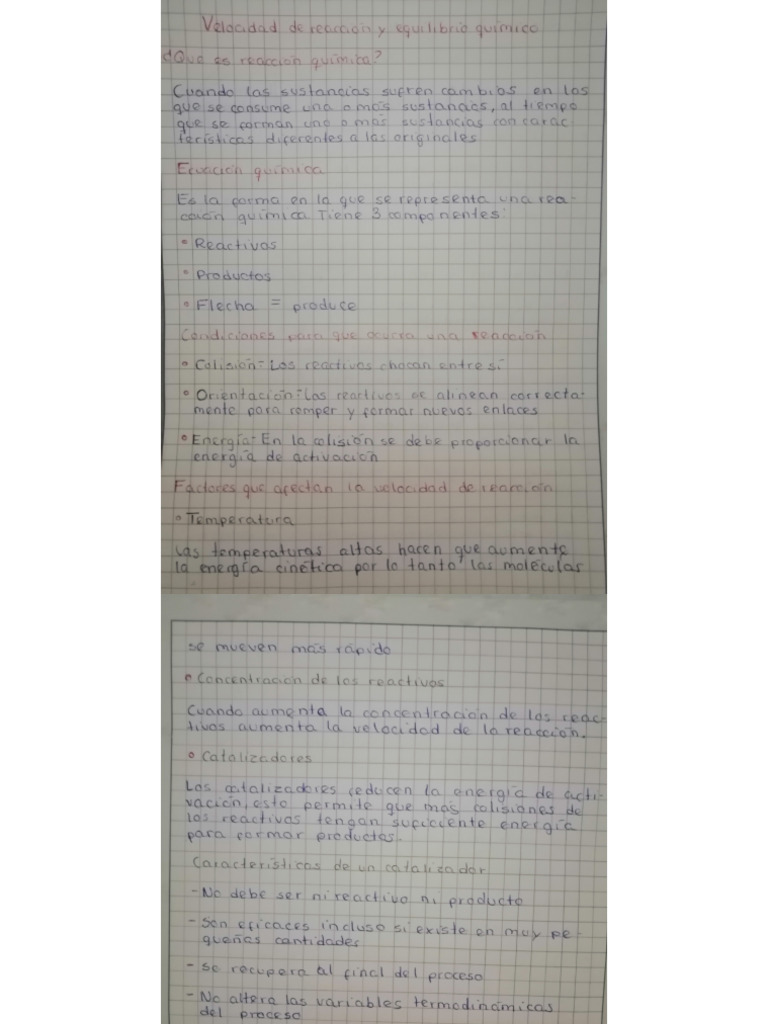 Velocidad de reacción y equilibrio químico
¿Que es reacción química?
Cuando las sustancias sufren cambios en los
que se consume una o más sustancias, al tiempo
que se forman una o más sustancias con carac
terísticas diferentes a las originales
Ecuación química
Es la forma en la que se representa una rea-
cción química Tiene 3 componentes:
• Reactivos
• Productos
• Flecha = produce
Condiciones para que ocurra una reacción
• Colisión = Los reactivos chocan entre sí
• Orientación = Los reactivos se alinean correcta-
mente para romper y formar nuevos enlaces
• Energía - En la colisión se debe proporcionar la
energía de activación
Factores que afectan la velocidad de reacción
• Temperatura
Las temperaturas altas hacen que aumente
la energía cinética por lo tanto las moléculas
se mueven más rápido
• Concentración de los reactivos
Cuando aumenta la concentración de los reac-
tivos aumenta la velocidad de la reacción.
• Catalizadores
Los catalizadores reducen la energía de acti-
vación, esto permite que más colisiones de
los reactivos tengan suficiente energía
para formar productos.
Características de un catalizador
- No debe ser ni reactivo ni producto
- Son eficaces incluso si existe en muy pe-
queñas cantidades
- Se recupera al final del proceso
- No altera las variables termodinámicas
del proceso